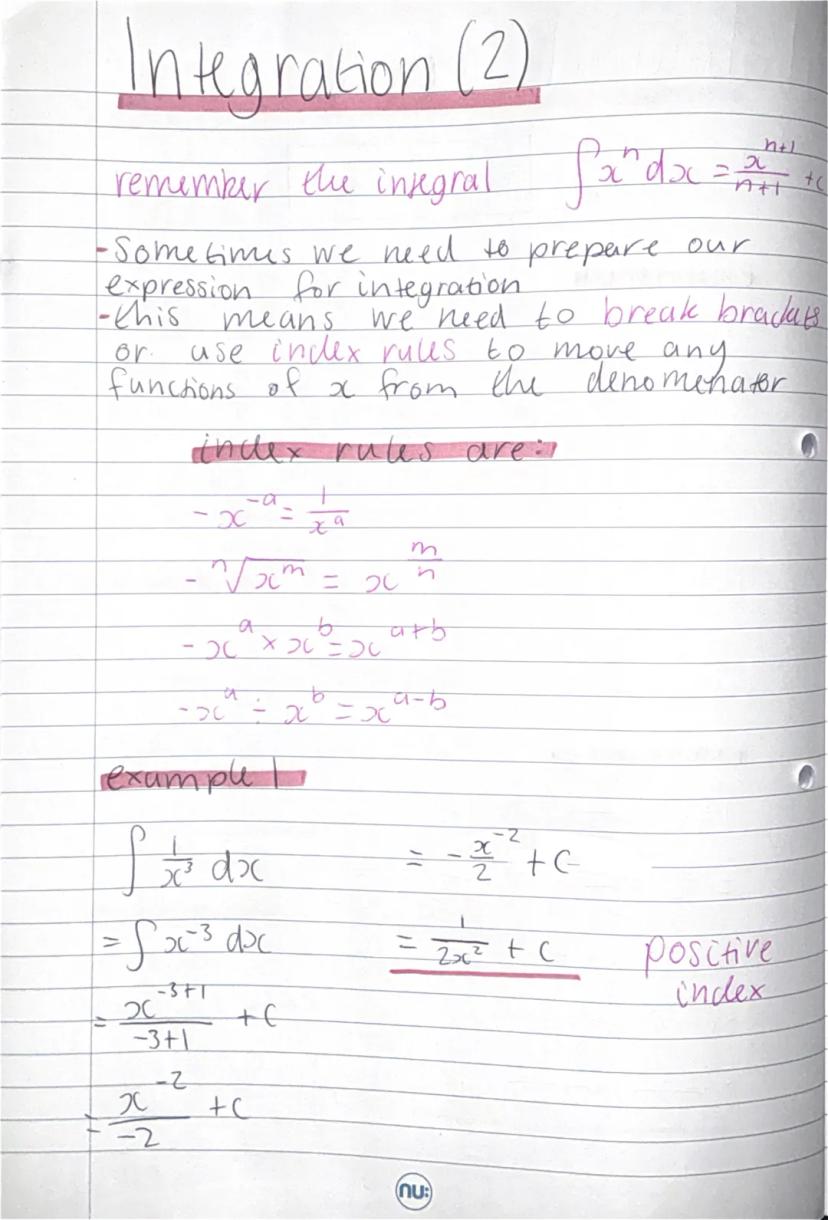 Integration (2)
remember the integral ∫xⁿ dx = xⁿ⁺¹/n+1 + c
- Sometimes we need to prepare our
expression for integration
- this means we need to break brackets
or use index rules to move any
functions of x from the denomenator
index rules are:
- x⁻ᵃ = 1/xᵃ
- ⁿ√xᵐ = x^(m/n)
- xᵃ × xᵇ = xᵃ⁺ᵇ
- xᵃ ÷ xᵇ = xᵃ⁻ᵇ
example 1
∫ 1/x³ dx
= ∫ x⁻³ dx
= x⁻³⁺¹/-3+1 + C
= x⁻²/-2 + C
= - x⁻²/2 + C
= 1/2x² + C positive
index
nu: